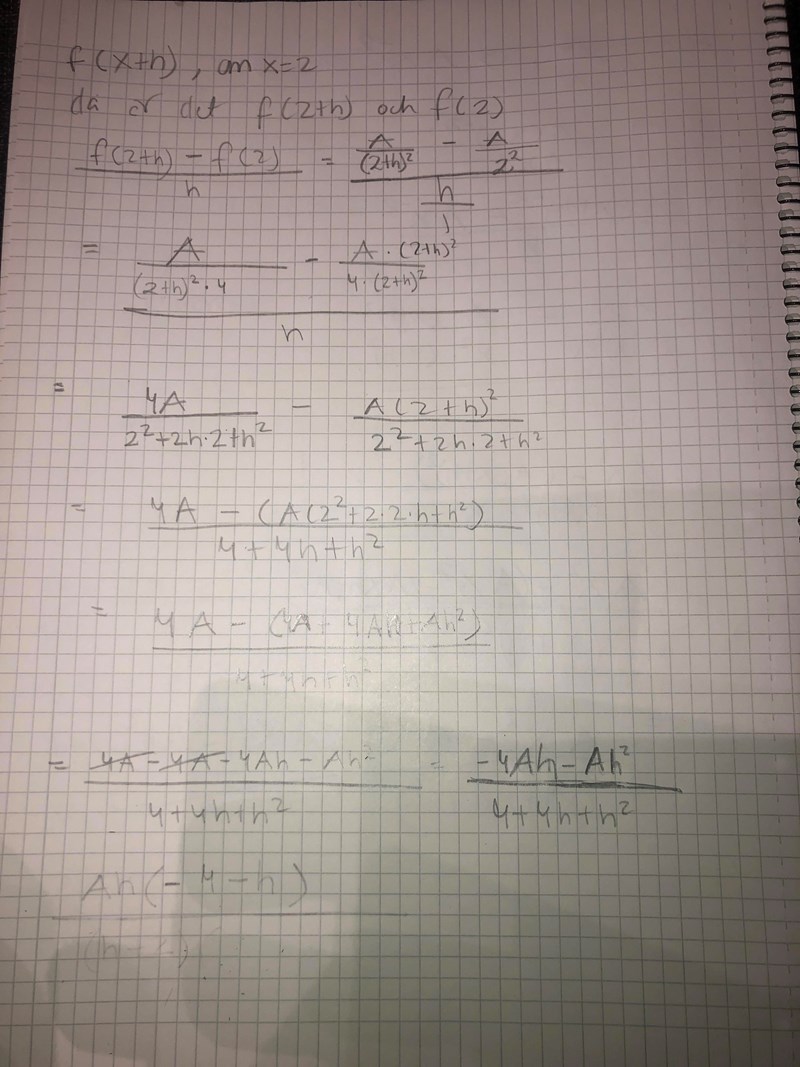 f(x+h), om x=2
då är det f(2+h) och f(2)
f(2+h) - f(2) / h = (A/(2+h)² - A/2²) / (h/1)
= (A/((2+h)²·4) - A·(2+h)²/(4·(2+h)²)) / h
= 4A/(2²+2h·2+h²) - A(2+h)²/(2²+2h·2+h²)
= 4A - (A(2²+2·2·h+h²) / 4+4h+h²
= 4A - (4A+4Ah+Ah²) / 4+4h+h²
= 4A - 4A - 4Ah - Ah² / 4+4h+h² = -4Ah - Ah² / 4+4h+h²
Ah(-4-h)